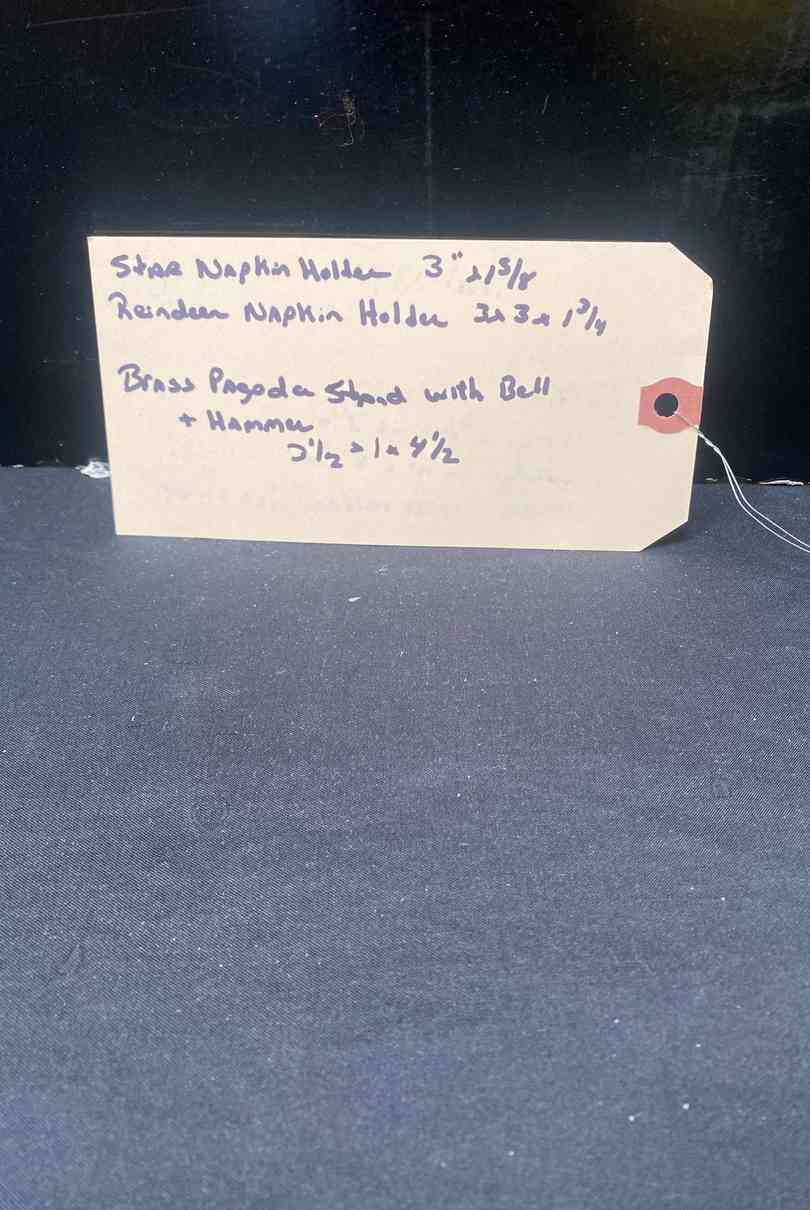 Star Napkin Holder 3" x 1 5/8
Reindeer Napkin Holder 3 x 3 x 1 3/4
Brass Pagoda Stand with Bell
+ Hammer
x 1 x 4 1/2